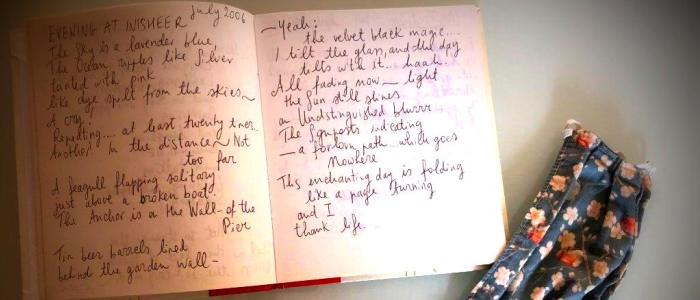 EVENING AT INISHEER July 2006
The Sky is a lavender blue,
The Ocean ripples like Silver
tainted with pink
like dye spilt from the skies~
A cry
Repeating.... at least twenty times..
Another in the distance~ Not
too far
A seagull flapping solitary
just above a broken boat
The Anchor is a the Wall - of the
Pier
Tin beer barrels lined
behind the garden wall -
- Yeah:
the velvet black magic....
I tilt the glass, and the day
tilts with it... haah.
All fading now — light
the sun still shines
an Undistinguished blurrr
The Signposts indicating
— a forlorn path... which goes
Nowhere
This enchanting day is folding
like a page turning
and I
thank life...